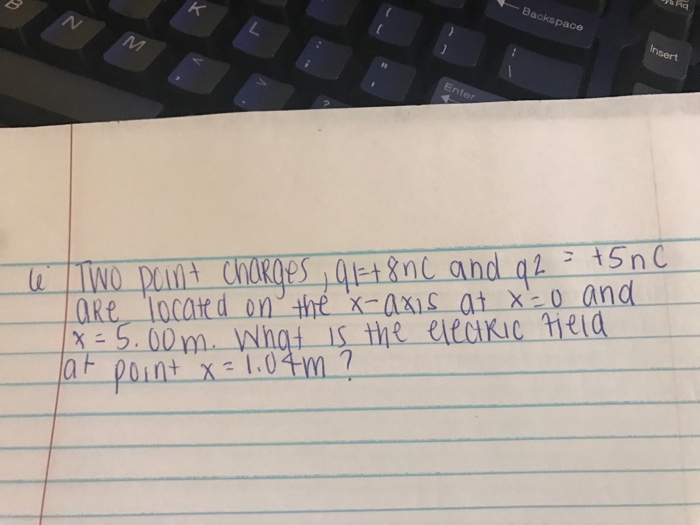 B N M K L
< , > . : ; " ' ? { [ } ] | \
Backspace
Insert
Enter
6 Two point charges, q1=+8nC and q2 = +5nC
are located on the x-axis at x=0 and
x=5.00m. What is the electric field
at point x=1.04m?